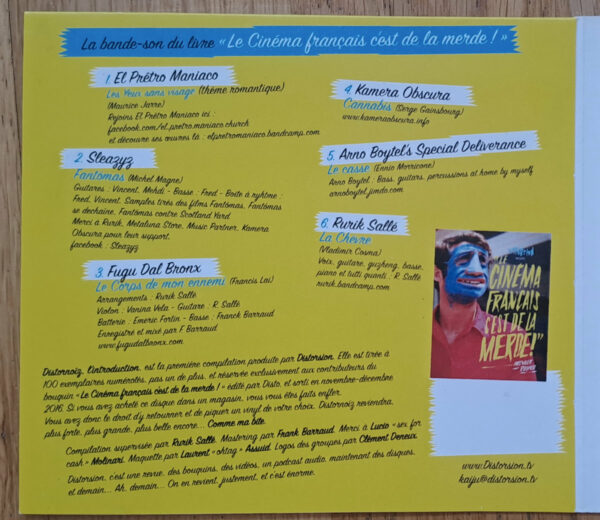 La bande-son du livre «Le Cinéma français c'est de la merde !»
1. El Prêtro Maniaco
Les Yeux sans visage (thème romantique)
(Maurice Jarre)
Rejoins El Prêtro Maniaco ici :
facebook.com/el.pretro.maniaco.church
et découvre ses œuvres là : elpretromaniaco.bandcamp.com
2. Sleazyz
Fantomas (Michel Magne)
Guitares : Vincent, Mehdi - Basse : Fred - Boîte à ryhtme :
Fred, Vincent. Samples tirés des films Fantômas, Fantômas
se dechaine, Fantômas contre Scotland Yard.
Merci à Rurik, Metaluna Store, Music Partner, Kamera
Obscura pour leur support.
facebook : Sleazyz
3. Fugu Dal Bronx
Le Corps de mon ennemi (Francis Lai)
Arrangements : Rurik Sallé
Violon : Vanina Vela - Guitare : R. Sallé
Batterie : Emeric Fortin - Basse : Franck Barraud
Enregistré et mixé par F Barraud
www.fugudalbronx.com
4. Kamera Obscura
Cannabis (Serge Gainsbourg)
www.kameraobscura.info
5. Arno Boytel's Special Deliverance
Le casse (Ennio Morricone)
Arno Boytel : Bass, guitars, percussions at home by myself
arnoboytel.jimdo.com
6. Rurik Sallé
La Chèvre
(Vladimir Cosma)
Voix, guitare, guzheng, basse,
piano et tutti quanti : R Sallé
rurik.bandcamp.com
LE
CINÉMA
FRANÇAIS
C'EST DE LA
MERDE!"
Distornoiz, l'introduction, est la première compilation produite par Distorsion. Elle est tirée à
100 exemplaires numérotés, pas un de plus, et réservée exclusivement aux contributeurs du
bouquin «Le Cinéma français c'est de la merde !» édité par Disto, et sorti en novembre-décembre
2016. Si vous avez acheté ce disque dans un magasin, vous vous êtes faits enfler.
Vous avez donc le droit d'y retourner et de piquer un vinyl de votre choix. Distornoiz reviendra,
plus forte, plus grande, plus belle encore... Comme ma bite.
Compilation supervisée par Rurik Sallé. Mastering par Frank Barraud. Merci à Lucio «sex for
cash» Molinari. Maquette par Laurent «ohtag» Assuid. Logos des groupes par Clément Deneux.
Distorsion, c'est une revue, des bouquins, des vidéos, un podcast audio, maintenant des disques,
et demain... Ah, demain... On en revient, justement, et c'est énorme.
www.Distorsion.tv
kaiju@distorsion.tv